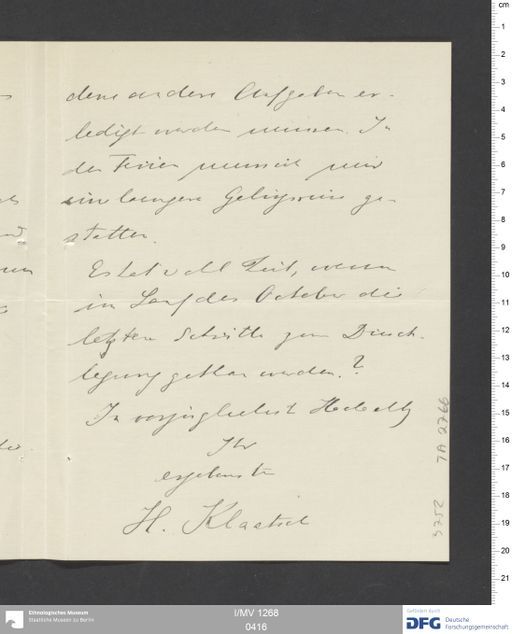 denn andere Aufgaben er-
ledigt werden müssen. In
den Ferien muss ich mir
eine laengere Gebirgsreise ge-
statten.
Es hat wohl Zeit, wenn
im Lauf des October die
letzten Schritte zur Druck-
legung gethan werden.?
In vorzüglichster Hochachtg
Ihr
ergebenster
H. Klaatsch
3752 TA 2766
cm
1
2
3
4
5
6
7
8
9
10
11
12
13
14
15
16
17
18
19
20
21
Ethnologisches Museum
Staatliche Museen zu Berlin
I/MV 1268
0416
Gefördert durch
DFG Deutsche
Forschungsgemeinschaft